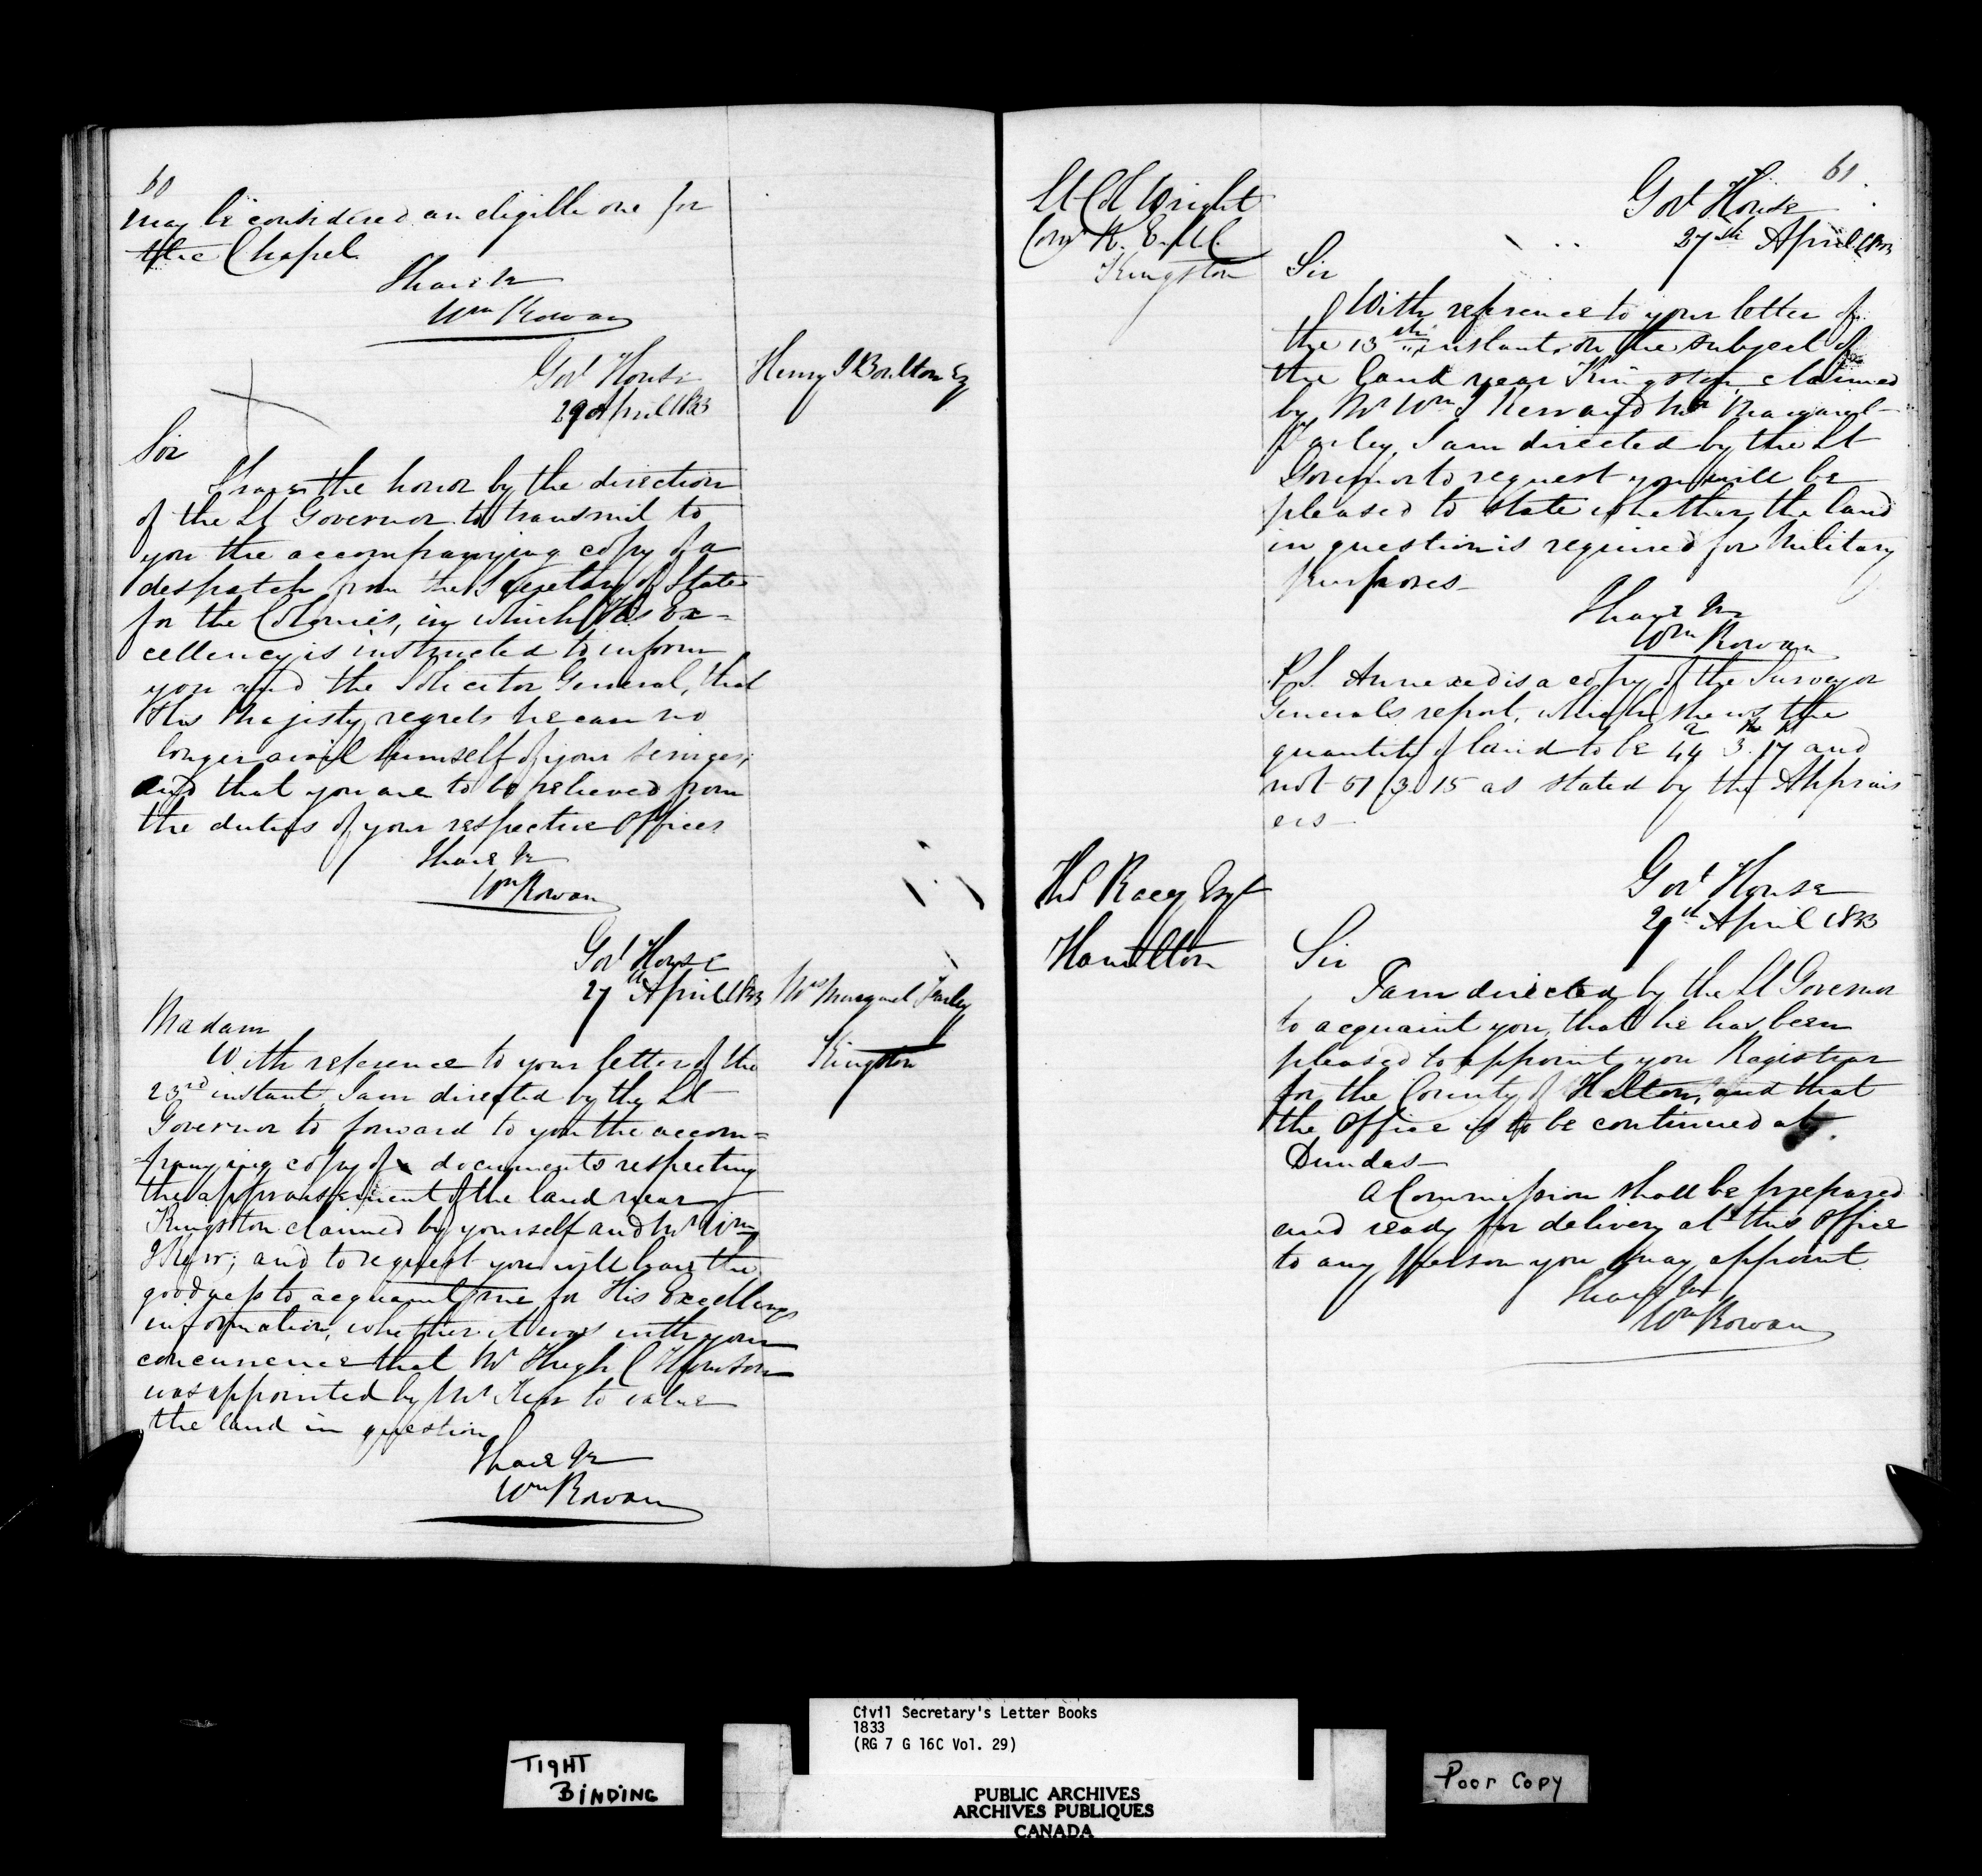 60
may be considered an eligible one for
the Chapel
I have &c
Wm Rowan
Govt House
29 April 1833
Henry J Boulton Esq
Sir
I have the honor by the direction
of the Lt Governor to transmit to
you the accompanying copy of a
despatch from the Secretary of State
for the Colonies, in which His Ex-
cellency is instructed to inform
you and the Solicitor General, that
His Majesty regrets he can no
longer avail himself of your services,
and that you are to be relieved from
the duties of your respective offices
I have &c
Wm Rowan
Govt House
27th April 1833
Mrs Margaret Farley
Kingston
Madam
With reference to your letter of the
23rd instant, I am directed by the Lt
Governor to forward to you the accom=
=panying copy of documents respecting
the appraisement of the land near
Kingston claimed by yourself and Mr Wm
J Kerr; and to request you will have the
goodness to acquaint me for His Excellencys
information, whether it was with your
concurrence that Mr Hugh C Thomson
was appointed by Mr Kerr to value
the land in question
I have &c
Wm Rowan
61
Lt Col Wright
Comg R. E. U.C.
Kingston
Govt House
27th April 1833
Sir
With reference to your letter of
the 13th instant, on the subject of
the land near Kingston, claimed
by Mr Wm J Kerr and Mrs Margaret
Farley, I am directed by the Lt
Governor to request you will be
pleased to state whether the land
in question is required for Military
purposes—
I have &c
Wm Rowan
P.S. Annexed is a copy of the Surveyor
Generals report, which shews the
quantity of land to be 44 3. 17 and
not 61 3 15 as stated by the Apprais
ers—
Thos Racey Esqr
Hamilton
Govt House
29th April 1833
Sir
I am directed by the Lt Governor
to acquaint you, that he has been
pleased to appoint you Registrar
for the County of Halton, and that
the Office is to be continued at
Dundas—
A Commission shall be prepared
and ready for delivery at this office
to any person you may appoint
I have &c
Wm Rowan
Civil Secretary's Letter Books
1833
(RG 7 G 16C Vol. 29)
TIGHT
BINDING
PUBLIC ARCHIVES
ARCHIVES PUBLIQUES
CANADA
Poor Copy